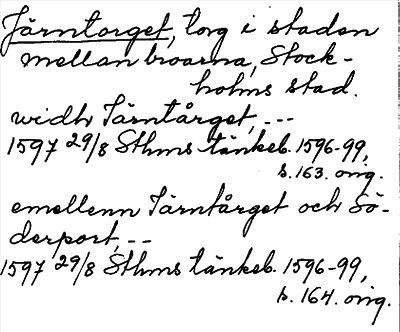 Järntorget, torg i staden
mellan broarna, Stock-
holms stad.
widh Järntårget, ---
1597 29/8 Sthms tänkeb. 1596-99,
s. 163. orig.
emellenn Järntårget och Sö-
derport, --
1597 29/8 Sthms tänkeb. 1596-99,
s. 164. orig.